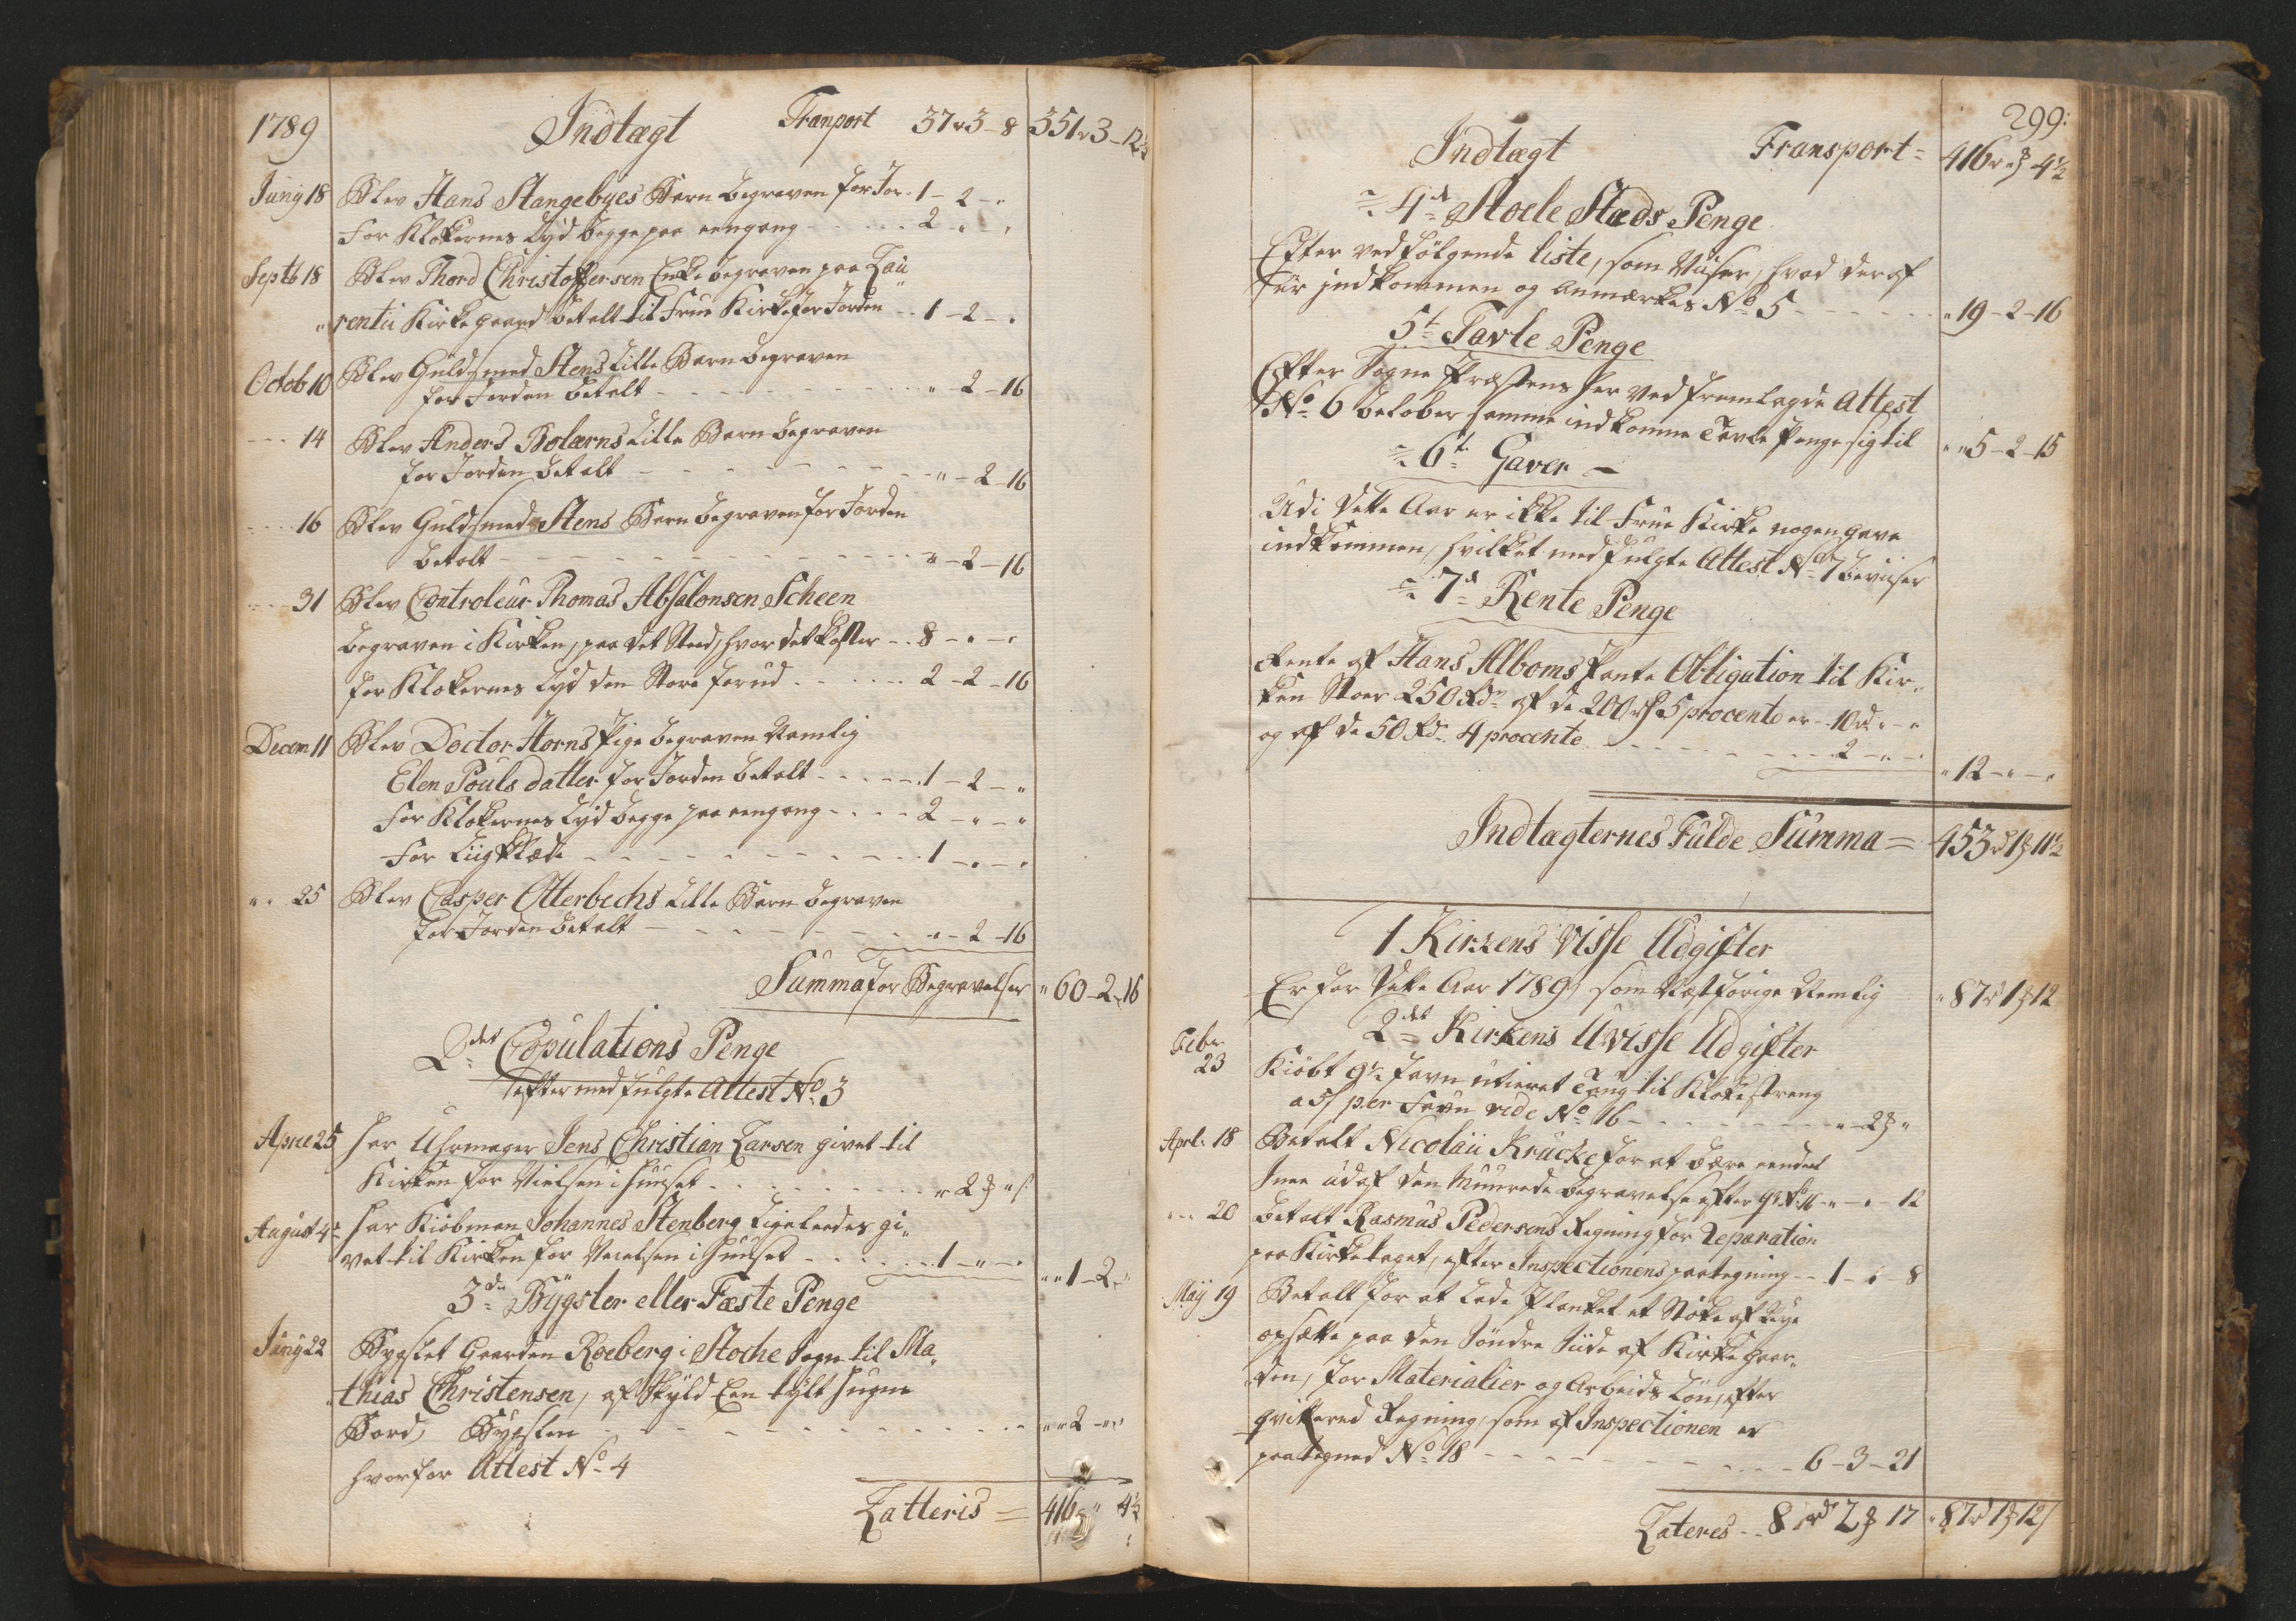 1789 Indtægt Tranport 37r3-8 351r3-12½
Juny 18 Blev Hans Stangebyes Barn begraven for Jor. 1-2-"
For Klokernes Lyd begge paa eengang - - - - - 2 " "
Septb 18 Blev Thord Christoffersen Enke begraven paa Lau
"rentii Kirke gaard betalt til Frue Kirke for Jorden - - 1-2-"
Octob 10 Blev Guldsmed Stens Lille Barn begraven
for Jorden betalt - - - - - - - - " 2-16
- - - 14 Blev Anders Bolærns Lille Barn begraven
for Jorden betalt - - - - - - - - "-2-16
- - - 16 Blev Guldsmed Stens Barn begraven for Jorden
betalt - - - - - - - - - - "-2-16
- - - 31 Blev Controleur Thomas Absalonsen Scheen
begraven i Kirken, paa det Sted, hvor det koster - - 8-"-"
for Klokernes Lyd den Store forud - - - - - - 2-2-16
Decem 11 Blev Doctor Horns Pige begraven Namlig
Elen Pouls datter for Jorden betalt - - - - - 1-2-"
For Klokernes Lyd begge paa eengang - - - - 2-"-"
For Liigklæde - - - - - - - - - - 1-"-"
" " 25 Blev Casper Otterbechs Lille Barn begraven
for Jorden betalt - - - - - - - - "-2-16
Summa for Begravelser " 60-2-16
2det Copulations Penge
efter medfulgte Attest No 3
Aprie 25 har Uhrmager Jens Christian Larsen givet til
Kirken for Vielsen i Huuset - - - - - - - - " 2 " "
August 4 har Kiöbman Johannes Stenberg Ligeleedes gi"
vet til Kirken for Vielsen i Huuset - - - - - - 1-"-" " " 1-2-"
3de Bÿgsler eller Fæste Penge
Juny 22 Bygslet Gaarden Roeberg i Stoche Sogn til Ma"
"thias Christensen, af Skyld Een tÿlt Hugne
Bord, Bygslen - - - - - - - - - - - - " " 2-" "
hvorfor Attest No 4
Latteris = 416 " 4½
299:
Indtægt Transport = 416r " 4½
4de Stoele Stads Penge
Efter vedfölgende Liste, som Viiser, hvad deraf
er jndkommen og anmærkes No 5 - - - - - - " 19-2-16
5te Tavle Penge
Efter Sogne Præstens her ved fremlagde Attest
No 6 beløber samme indkomne Tavle Penge sig til " " 5-2-15
6te Gaver
Udi dette Aar er ikke til Frue Kirke nogen Gave
indkommen, hvilket medfulgte Attest No 7 beviiser
7de Rente Penge
Rente af Hans Alboms Pante Obligation til Kir"
ken Stoer 250 Rdr af de 200 rd 5 procento er - - 10rd " "
og af de 50 Rdr 4 procento - - - - - - - - - 2-"-" " 12-"-"
Indtægternes Fulde Summa = 453rd 1 11½
1 Kirkens Visse Udgifter
Er for dette Aar 1789, som næstforige Nemlig " 87rd 1 12
2det Kirkens Uvisse Udgifter
Febr 23 Kiöbt 9½ favn utieret Toug til Klokestreng
a 5 per Favn vide No 16 - - - - - - - - "-2 "
Aprl. 18 Betalt Nicolaii Krücke for at bære eendeel
Snee ud af den Muurede begravelse efter "-"-12
- - - 20 betalt Rasmus Pedersens Regning for Reparation
paa Kirketaget, efter Inspectionens paategning - - 1- -8
Maÿ 19 Betalt for at Lede Planket et Støke af Nye
opsætte paa den Söndre Siide af Kirke gaar"
den, for Materialier og Arbeids Lön, efter
qvitered Regning, som af Inspectionen er
paategned No 18 - - - - - - - - - - 6-3-21
Lateres - - 8rd 2 17 " 87rd 1 12